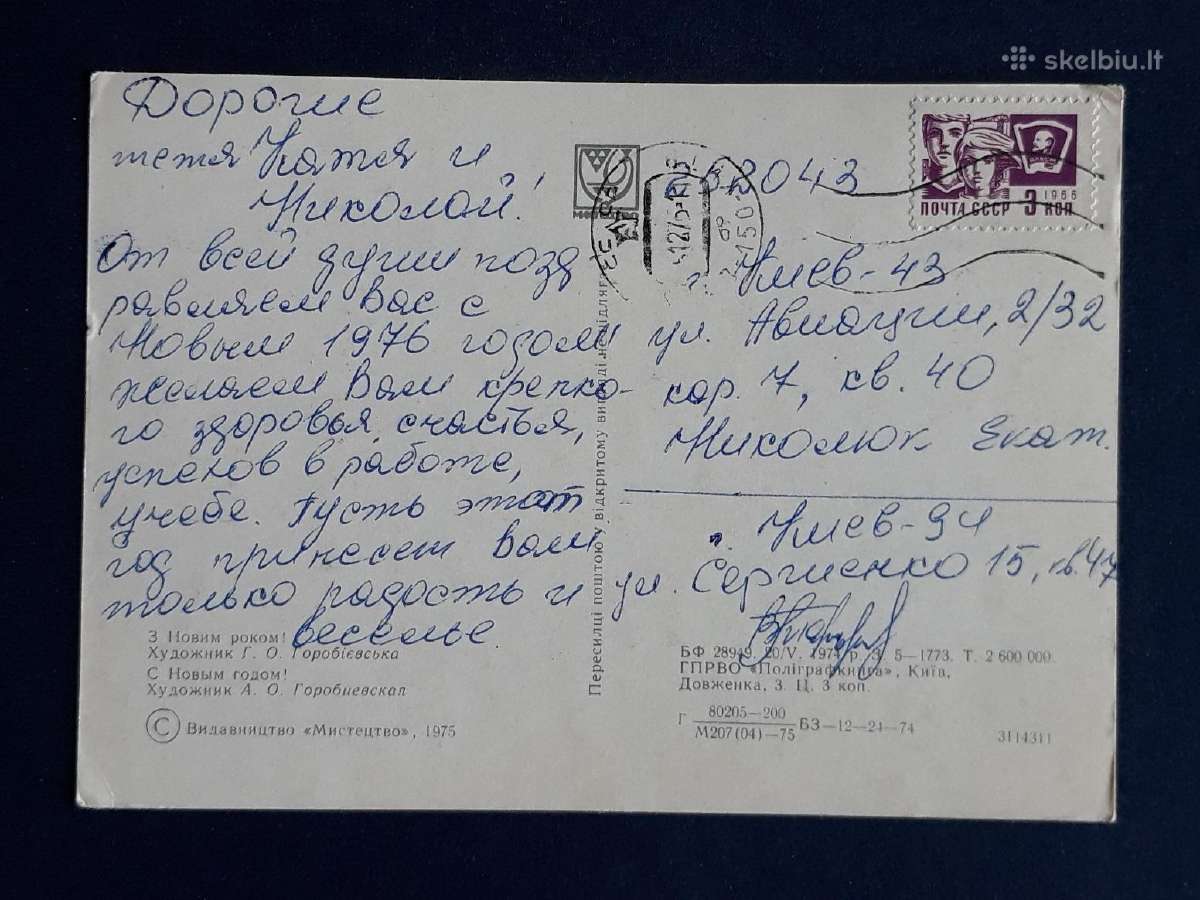 skelbiu.lt
Дорогие
тетя Катя и
Николай!
От всей души позд
равляем Вас с
Новым 1976 годом
желаем Вам крепко-
го здоровья, счастья,
успехов в работе,
учебе. Пусть этот
год принесет Вам
только радость и
веселье.
З Новим роком!
Художник Г. О. Горобієвська
С Новым годом!
Художник А. О. Горобиевская
© Видавництво «Мистецтво», 1975
Пересилці поштою у відкритому вигляді не підлягає
ПОЧТА СССР 3 КОП
1966
252043
г. Киев-43
ул. Авиации, 2/32
кор. 7, кв. 40
Николюк Екат.
г. Киев-94
ул. Сергиенко 15, кв. 47
БФ 28949. 20/V. 1974 р. З. 5—1773. Т. 2 600 000.
ГПРВО «Поліграфкнига», Київ,
Довженка, 3. Ц. 3 коп.
Г 80205—200
М207(04)—75 БЗ—12—24—74
3114311